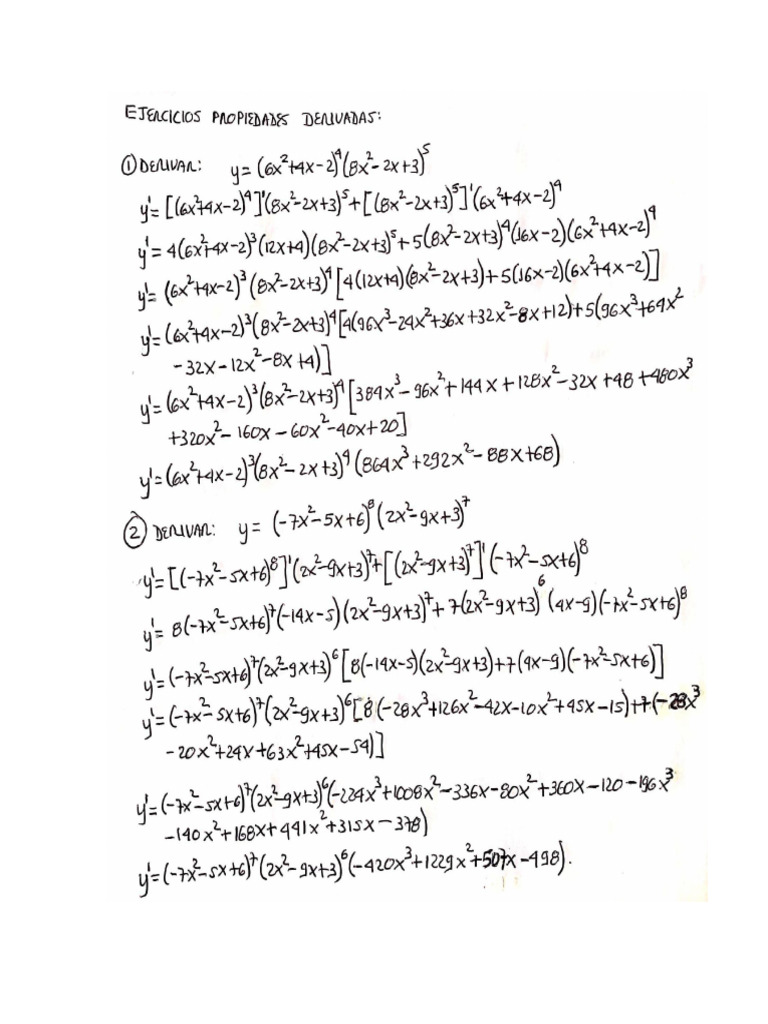 EJERCICIOS PROPIEDADES DERIVADAS:
① DERIVAR: y = (6x²+4x-2)⁴(8x²-2x+3)⁵
y' = [(6x²+4x-2)⁴]'(8x²-2x+3)⁵+[(8x²-2x+3)⁵]'(6x²+4x-2)⁴
y' = 4(6x²+4x-2)³(12x+4)(8x²-2x+3)⁵+5(8x²-2x+3)⁴(16x-2)(6x²+4x-2)⁴
y' = (6x²+4x-2)³(8x²-2x+3)⁴[4(12x+4)(8x²-2x+3)+5(16x-2)(6x²+4x-2)]
y' = (6x²+4x-2)³(8x²-2x+3)⁴[4(96x³-24x²+36x+32x²-8x+12)+5(96x³+64x²
-32x-12x²-8x+4)]
y' = (6x²+4x-2)³(8x²-2x+3)⁴[384x³-96x²+144x+128x²-32x+48+480x³
+320x²-160x-60x²-40x+20]
y' = (6x²+4x-2)³(8x²-2x+3)⁴(864x³+292x²-88x+68)
② DERIVAR: y = (-7x²-5x+6)⁸(2x²-9x+3)⁷
y' = [(-7x²-5x+6)⁸]'(2x²-9x+3)⁷+[(2x²-9x+3)⁷]'(-7x²-5x+6)⁸
y' = 8(-7x²-5x+6)⁷(-14x-5)(2x²-9x+3)⁷+7(2x²-9x+3)⁶(4x-9)(-7x²-5x+6)⁸
y' = (-7x²-5x+6)⁷(2x²-9x+3)⁶[8(-14x-5)(2x²-9x+3)+7(4x-9)(-7x²-5x+6)]
y' = (-7x²-5x+6)⁷(2x²-9x+3)⁶[8(-28x³+126x²-42x-10x²+45x-15)+7(-28x³
-20x²+24x+63x²+45x-54)]
y' = (-7x²-5x+6)⁷(2x²-9x+3)⁶(-224x³+1008x²-336x-80x²+360x-120-196x³
-140x²+168x+441x²+315x-378)
y' = (-7x²-5x+6)⁷(2x²-9x+3)⁶(-420x³+1229x²+507x-498).